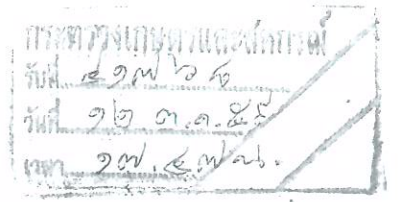 กระทรวงเกษตรและสหกรณ์
รับที่ ๔๑๗๖๘
วันที่ ๑๒ ต.ค. ๕๕
เวลา ๑๗.๔๗ น.